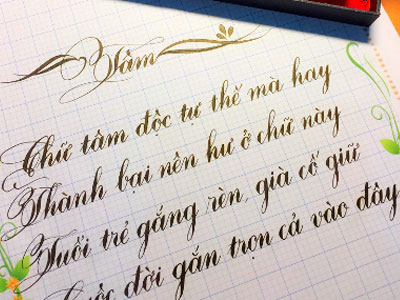 Tâm
Chữ tâm độc tự thế mà hay
Thành bại nên hư ở chữ này
Tuổi trẻ gắng rèn, già cố giữ
Cuộc đời gắn trọn cả vào đây